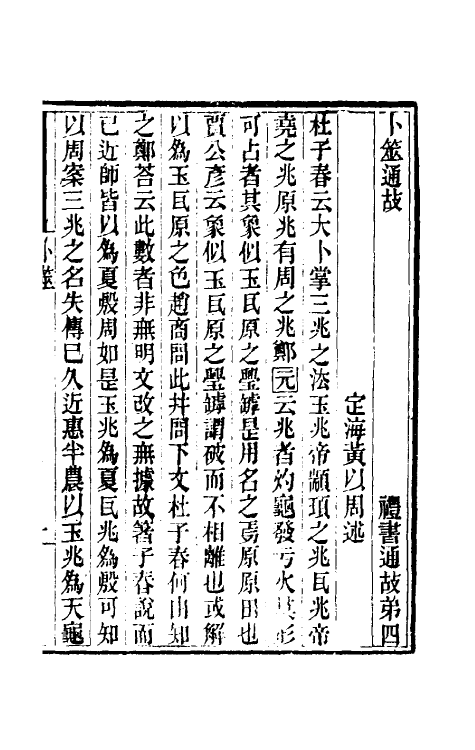 卜筮通故　禮書通故弟四
定海黃以周述
杜子春云大卜掌三兆之灋玉兆帝顓頊之兆瓦兆帝
堯之兆原兆有周之兆鄭元云兆者灼龜發亏火其形
可占者其象似玉瓦原之璺罅是用名之焉原原田也
賈公彥云象似玉瓦原之璺罅謂破而不相離也或解
以爲玉瓦原之色趙商問此幷問下文杜子春何由知
之鄭荅云此數者非無明文改之無據故箸子春說而
已近師皆以爲夏殷周如是玉兆爲夏瓦兆爲殷可知
以周案三兆之名失傳已久近惠半農以玉兆爲天龜
卜筮　一